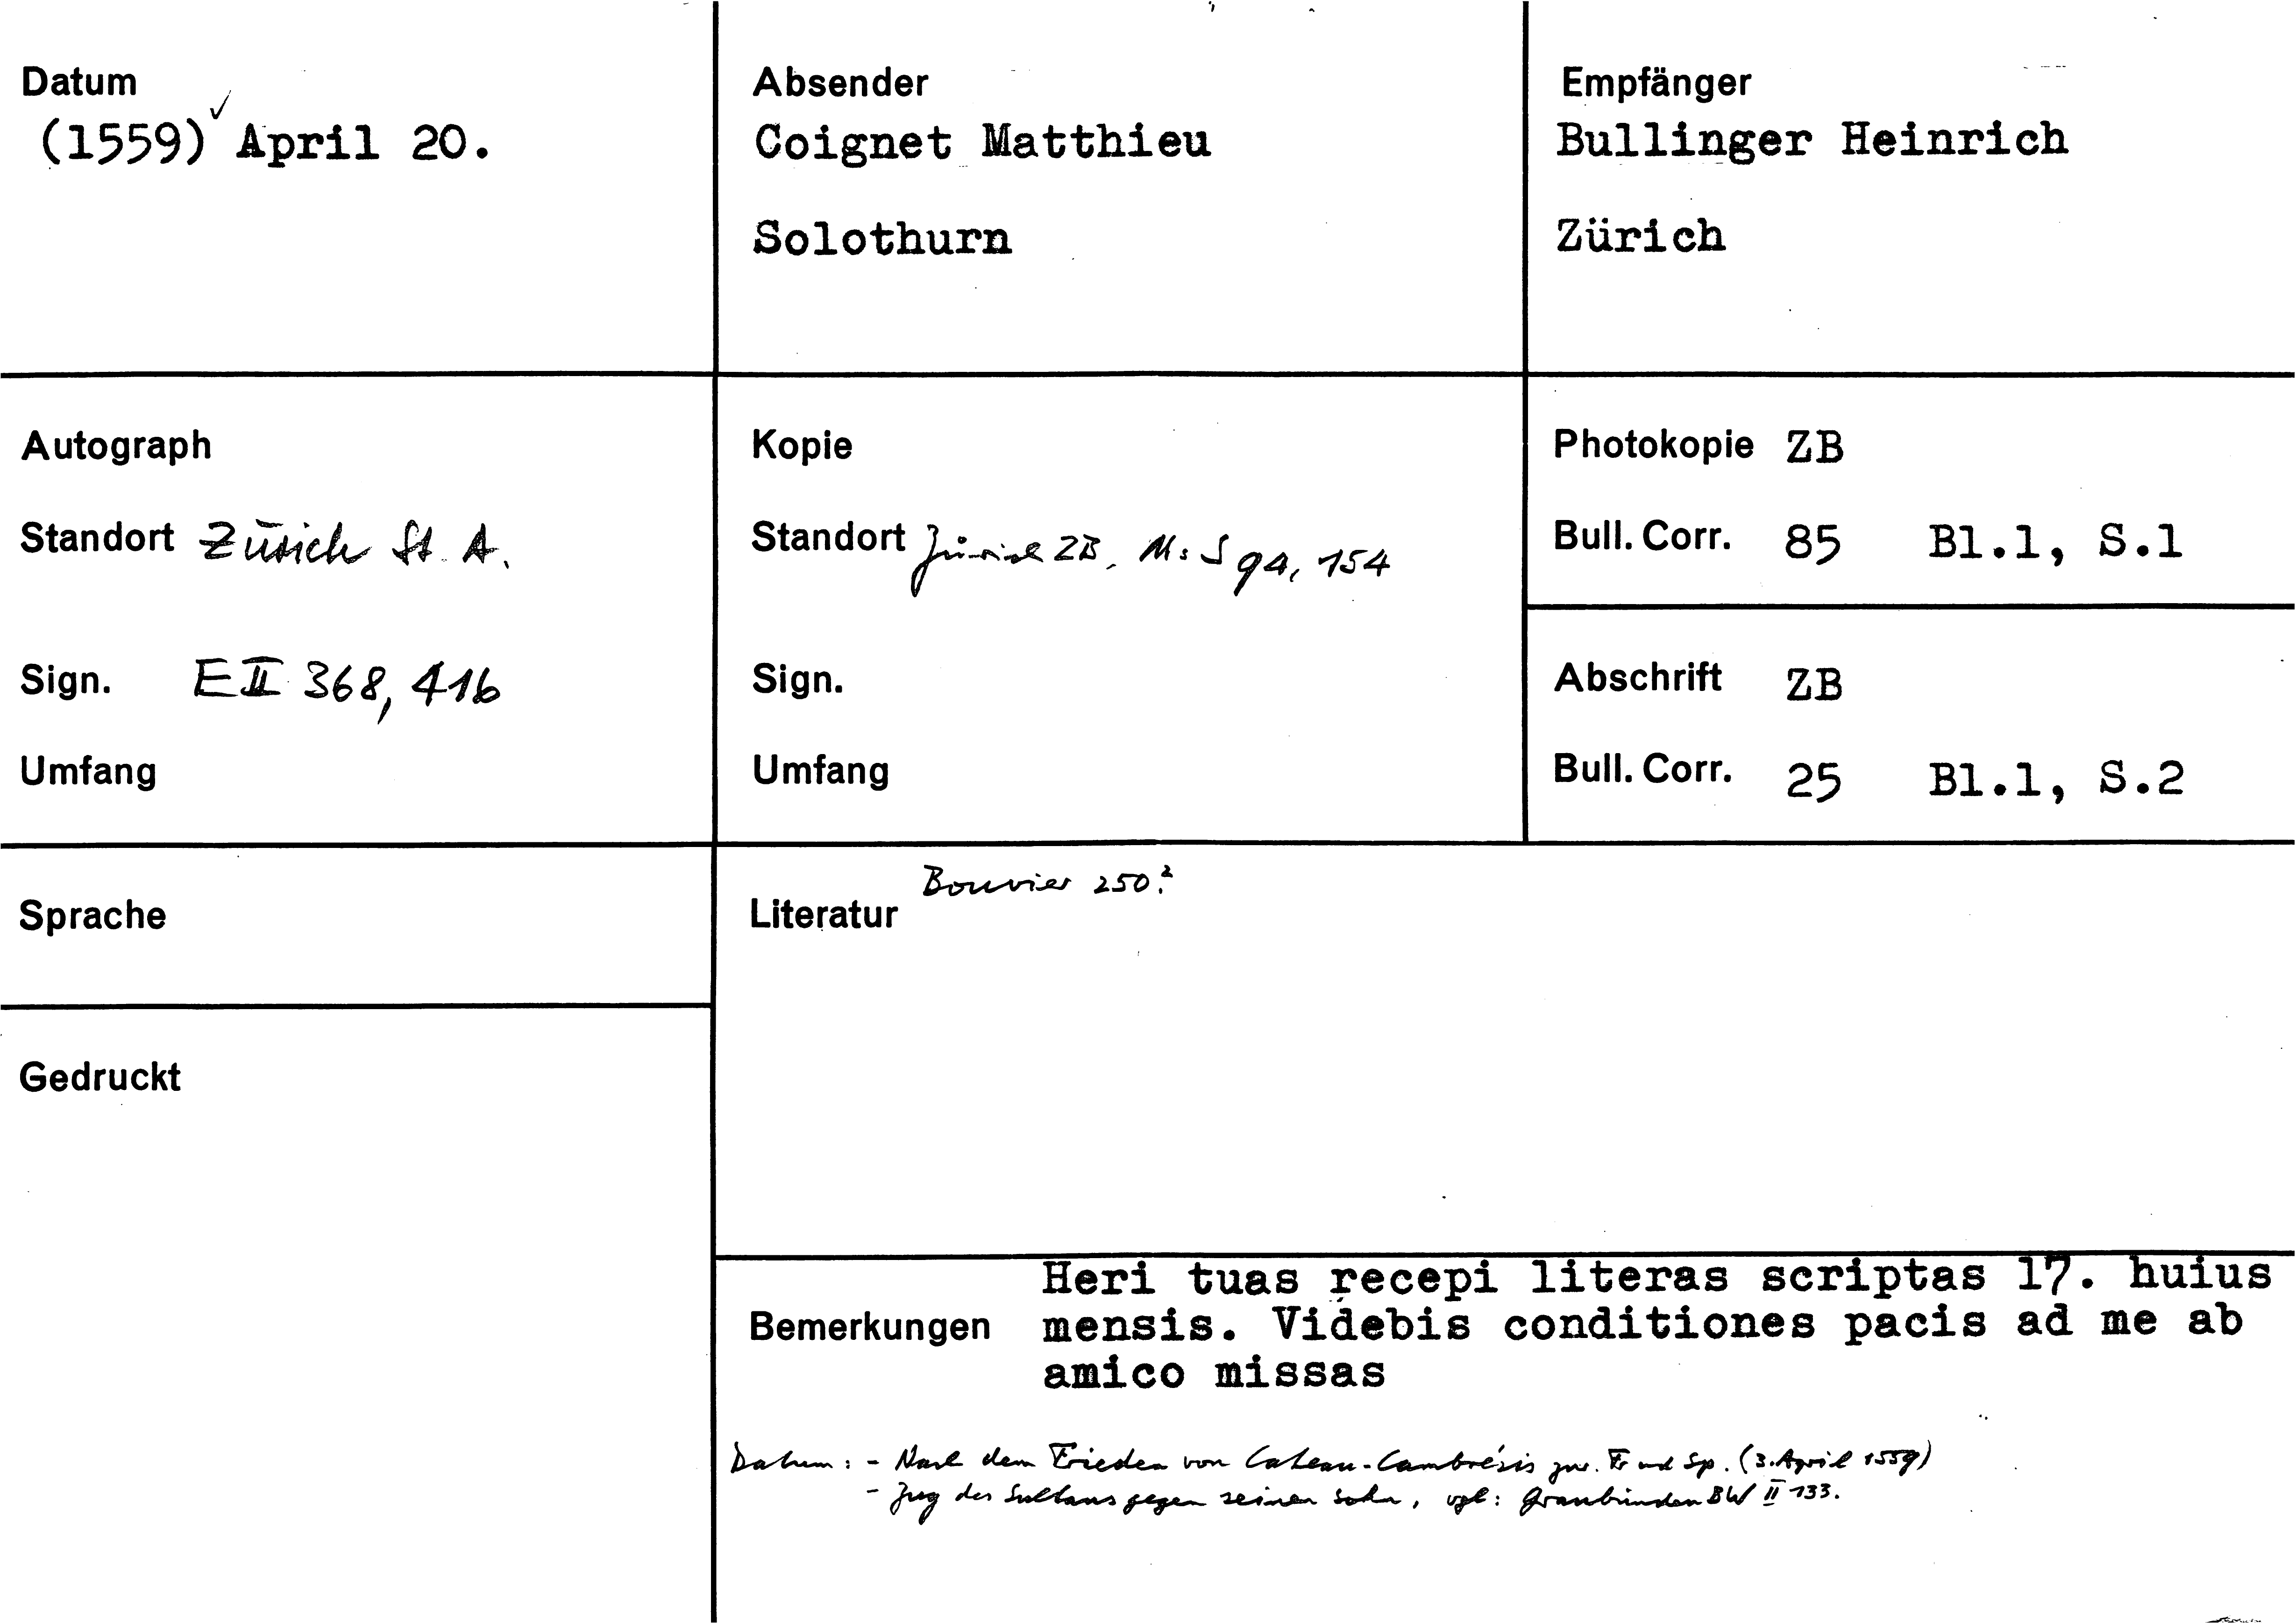 Datum
(1559) ✓ April 20.
Absender
Coignet Matthieu
Solothurn
Empfänger
Bullinger Heinrich
Zürich
Autograph
Standort Zürich St. A.
Sign. E II 368, 416
Umfang
Kopie
Standort Zürich ZB, Ms S 94, 154
Sign.
Umfang
Photokopie ZB
Bull. Corr. 85 Bl.1, S.1
Abschrift ZB
Bull. Corr. 25 Bl.1, S.2
Sprache
Gedruckt
Bouvier 250.²
Literatur
Heri tuas recepi literas scriptas 17. huius
Bemerkungen mensis. Videbis conditiones pacis ad me ab
amico missas
Datum: - Nach dem Frieden von Cateau-Cambrésis zw. Fr und Sp. (3. April 1559)
- Zug des Sultans gegen seinen Sohn, vgl: Graubünden BW II 133.